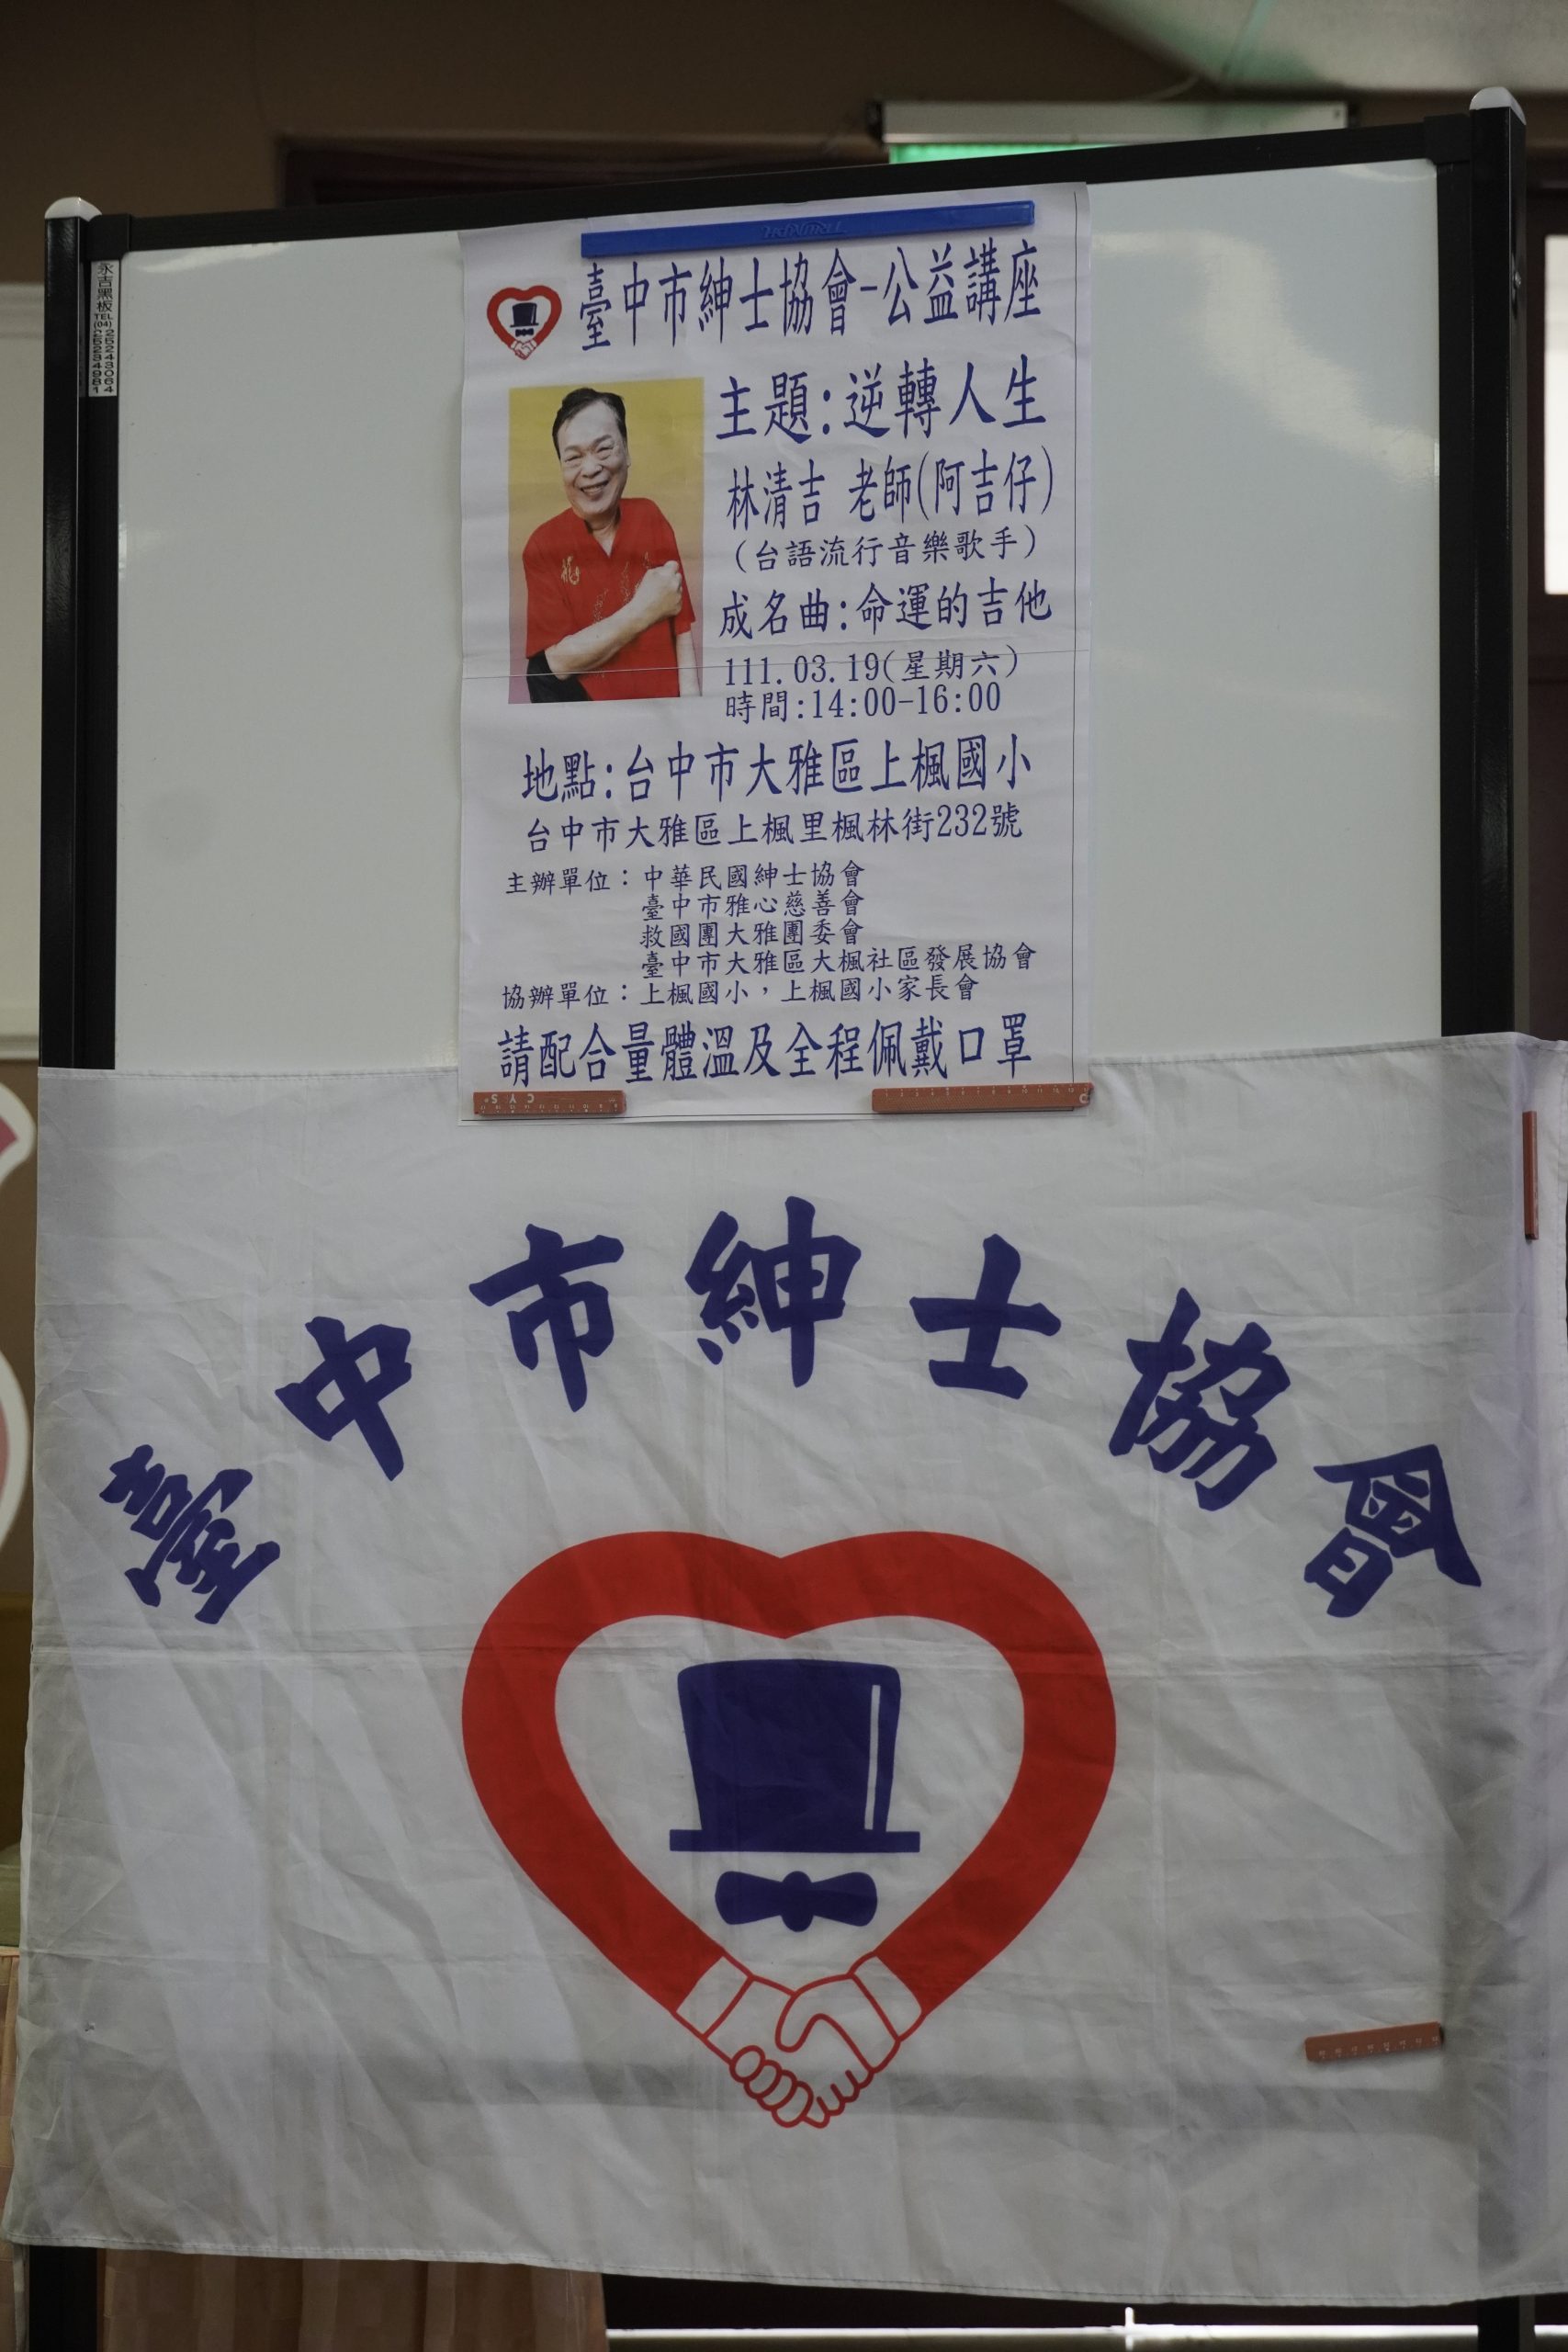 永吉黑板
TEL
(04)25243064
25234981
臺中市紳士協會-公益講座
主題:逆轉人生
林清吉 老師(阿吉仔)
(台語流行音樂歌手)
成名曲:命運的吉他
111.03.19(星期六)
時間:14:00-16:00
地點:台中市大雅區上楓國小
台中市大雅區上楓里楓林街232號
主辦單位：中華民國紳士協會
臺中市雅心慈善會
救國團大雅團委會
臺中市大雅區大楓社區發展協會
協辦單位：上楓國小，上楓國小家長會
請配合量體溫及全程佩戴口罩
臺中市紳士協會